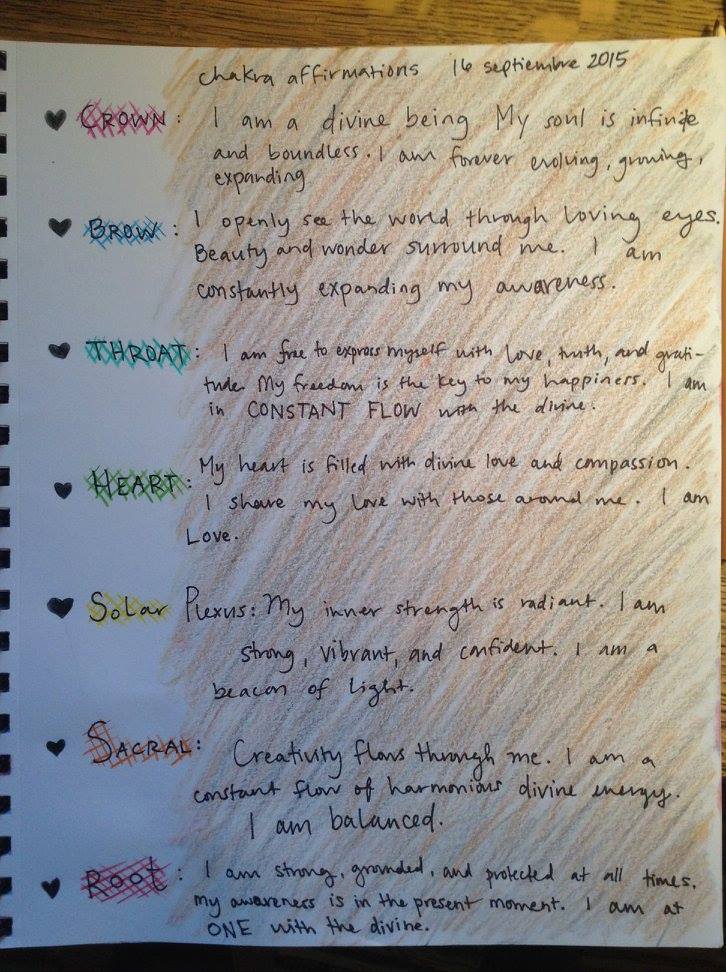 chakra affirmations 16 septiembre 2015
CROWN: I am a divine being My soul is infinite
and boundless. I am forever evolving, growing,
expanding
BROW: I openly see the world through loving eyes.
Beauty and wonder surround me. I am
constantly expanding my awareness.
THROAT: I am free to express myself with love, truth, and grati-
tude. My freedom is the key to my happiness. I am
in CONSTANT FLOW with the divine.
HEART: My heart is filled with divine love and compassion.
I share my love with those around me. I am
Love.
Solar Plexus: My inner strength is radiant. I am
strong, vibrant, and confident. I am a
beacon of light.
SACRAL: Creativity flows through me. I am a
constant flow of harmonious divine energy.
I am balanced.
ROOT: I am strong, grounded, and protected at all times.
my awareness is in the present moment. I am at
ONE with the divine.